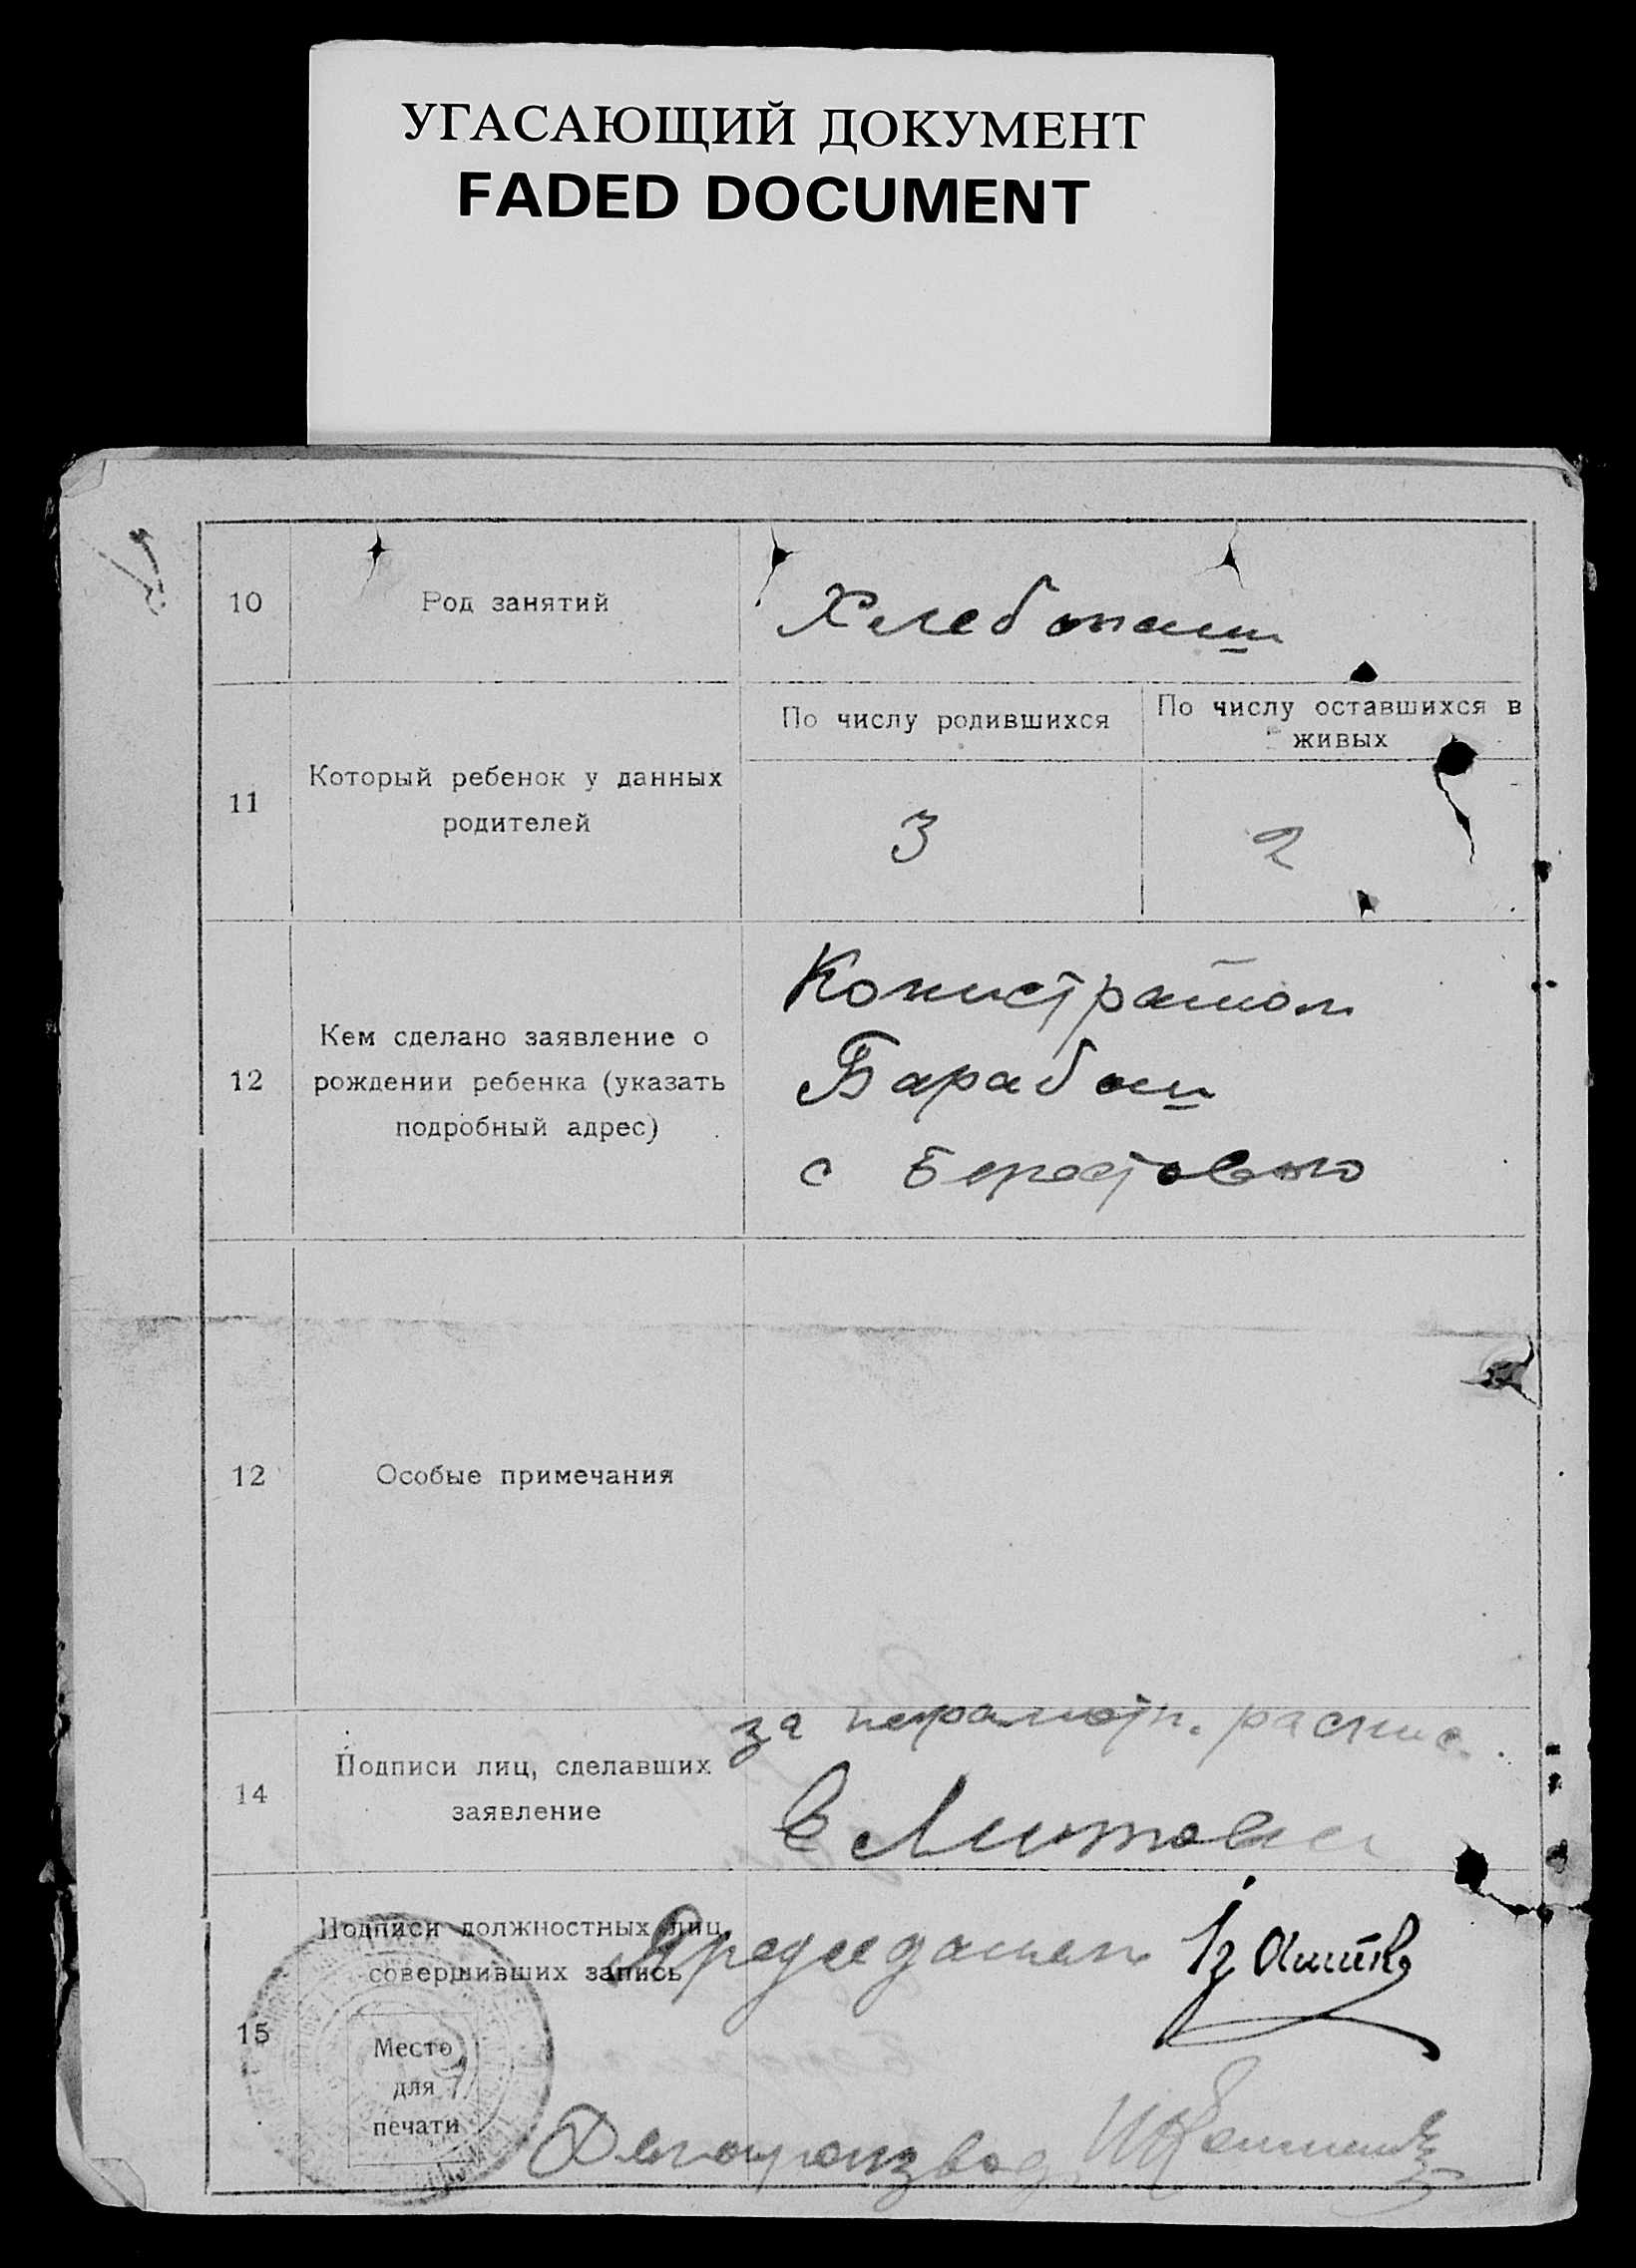 УГАСАЮЩИЙ ДОКУМЕНТ
FADED DOCUMENT
10
Род занятий
Хлебопаш
11
Который ребенок у данных
родителей
По числу родившихся
По числу оставшихся в
живых
3
2
12
Кем сделано заявление о
рождении ребенка (указать
подробный адрес)
Барабаш
с Берестового
12
Особые примечания
14
Подписи лиц, сделавших
заявление
за неграмотн. распис.
15
Подписи должностных лиц,
совершивших запись
Председатель
Место
для
печати
Делопроизвод